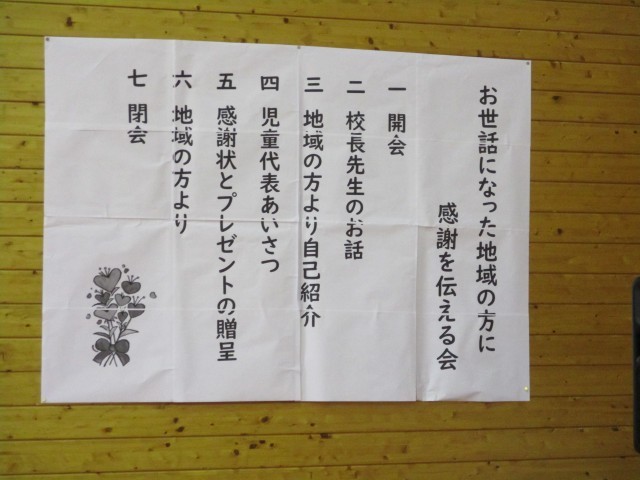 お世話になった地域の方に
感謝を伝える会
一 開会
二 校長先生のお話
三 地域の方より自己紹介
四 児童代表あいさつ
五 感謝状とプレゼントの贈呈
六 地域の方より
七 閉会